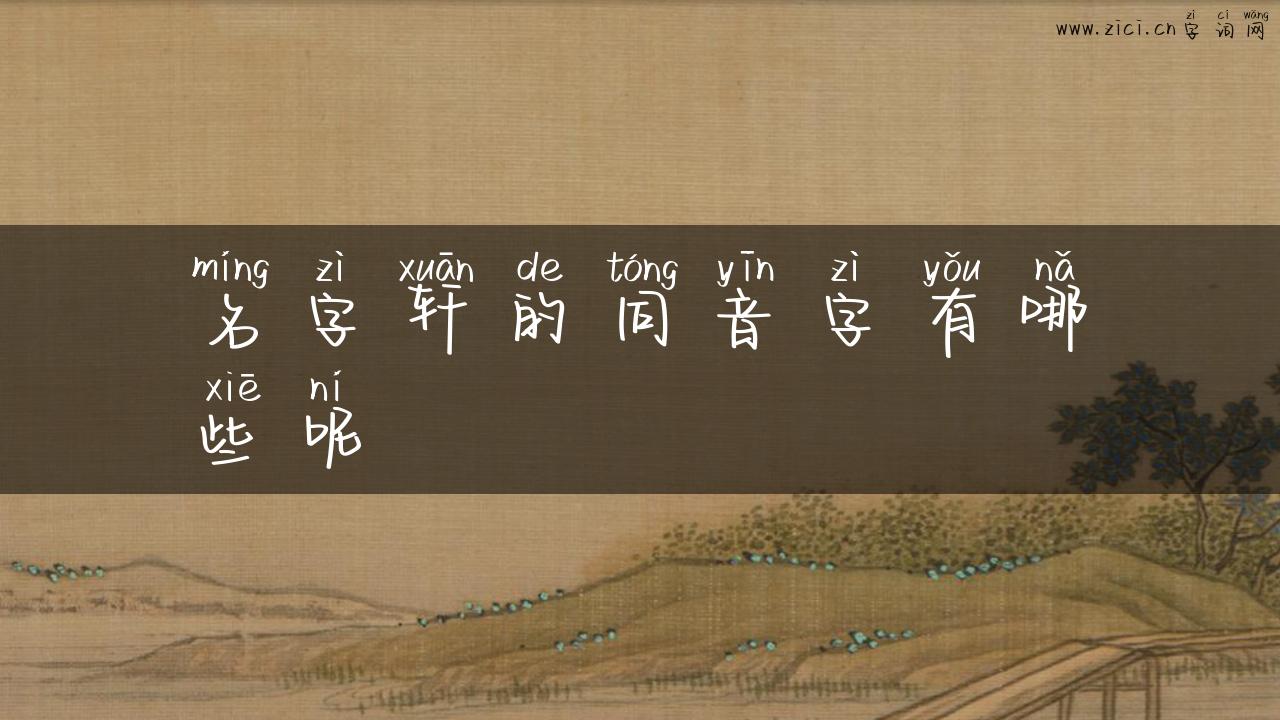 zì cí wǎng
www.zici.cn字词网
míng zì xuān de tóng yīn zì yǒu nǎ
名字轩的同音字有哪
xiē ní
些呢